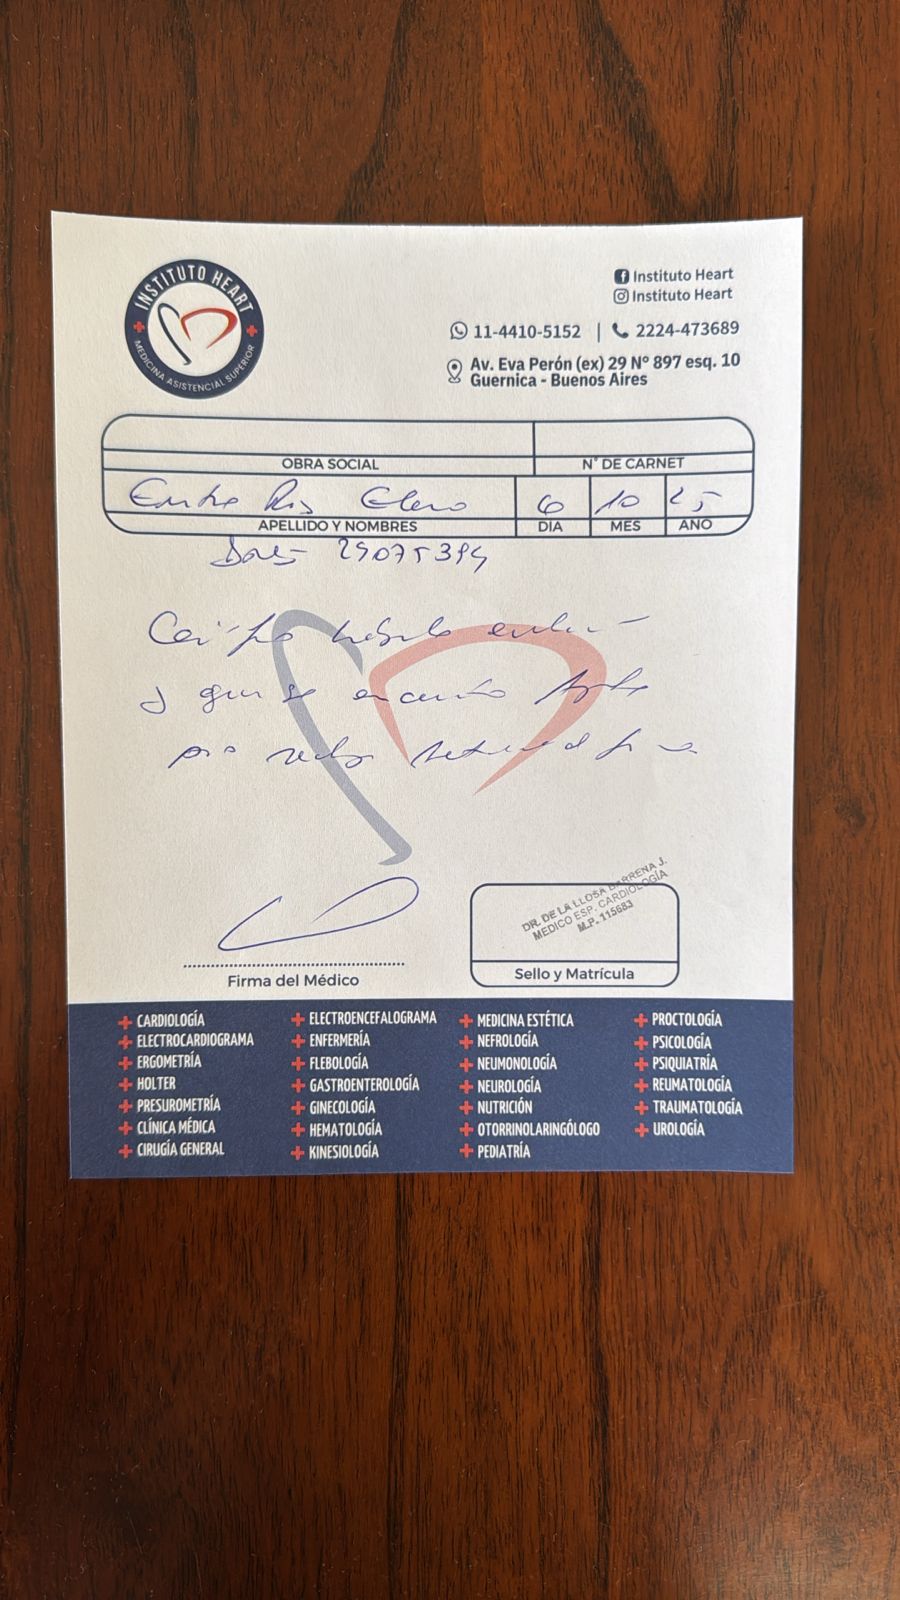 INSTITUTO HEART
MEDICINA ASISTENCIAL SUPERIOR
Instituto Heart
Instituto Heart
11-4410-5152 | 2224-473689
Av. Eva Perón (ex) 29 Nº 897 esq. 10
Guernica - Buenos Aires
OBRA SOCIAL
N° DE CARNET
6 10 25
APELLIDO Y NOMBRES
DIA
MES
AÑO
se
Firma del Médico
DR. DE LA LLOSA BARRENA J.
MEDICO ESP. CARDIOLOGÍA
M.P. 115683
Sello y Matrícula
CARDIOLOGÍA
ELECTROCARDIOGRAMA
ERGOMETRÍA
HOLTER
PRESUROMETRÍA
CLÍNICA MÉDICA
CIRUGÍA GENERAL
ELECTROENCEFALOGRAMA
ENFERMERÍA
FLEBOLOGÍA
GASTROENTEROLOGÍA
GINECOLOGÍA
HEMATOLOGÍA
KINESIOLOGÍA
MEDICINA ESTÉTICA
NEFROLOGÍA
NEUMONOLOGÍA
NEUROLOGÍA
NUTRICIÓN
OTORRINOLARINGÓLOGO
PEDIATRÍA
PROCTOLOGÍA
PSICOLOGÍA
PSIQUIATRÍA
REUMATOLOGÍA
TRAUMATOLOGÍA
UROLOGÍA